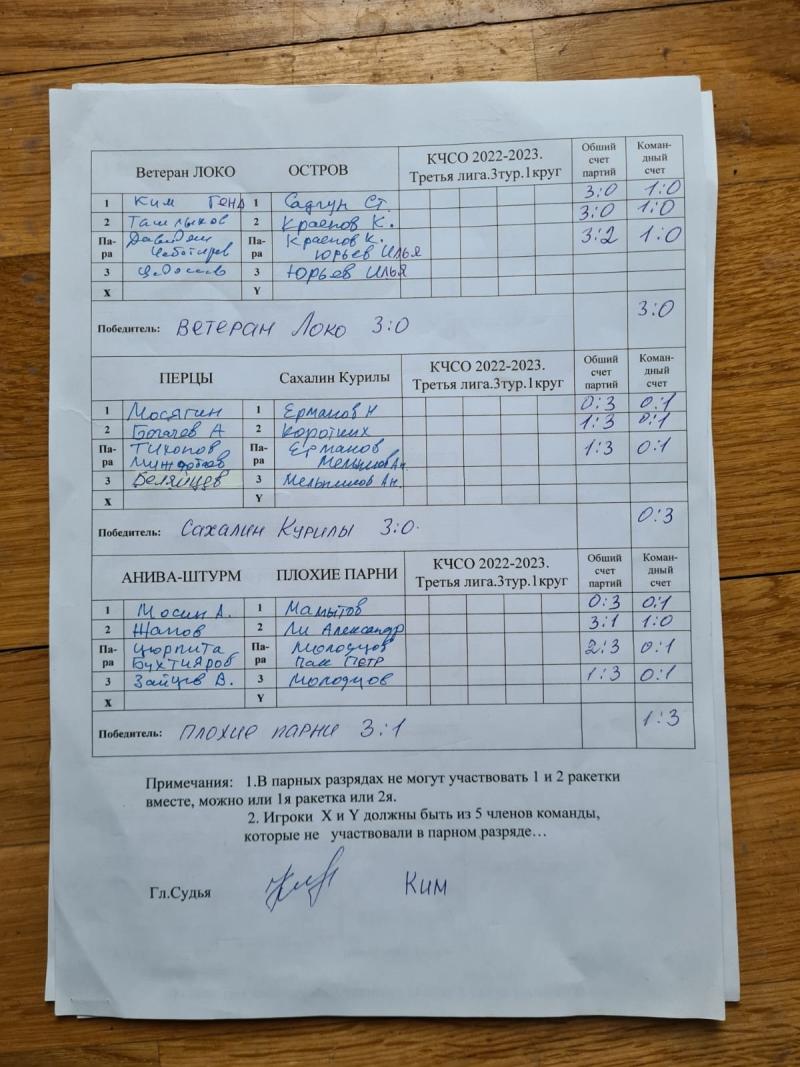 Ветеран ЛОКО ОСТРОВ КЧСО 2022-2023. Третья лига.3тур.1круг Общий счет партий Коман-дный счет
1 Ким Генд 1 Садгун Ст 3:0 1:0
2 Ташлыков 2 Краепов К. 3:0 1:0
Па-ра Давидян Па-ра Краепов К. 3:2 1:0
Чеботарев Юрьев Илья
3 3 Юрьев Илья
X Y
Победитель: Ветеран Локо 3:0 3:0
ПЕРЦЫ Сахалин Курилы КЧСО 2022-2023. Третья лига.3тур.1круг Общий счет партий Коман-дный счет
1 Мосягин 1 Ермаков Н 0:3 0:1
2 Богачев А 2 Коротких 1:3 0:1
Па-ра Тихонов Па-ра Ермаков 1:3 0:1
Мельников Ан.
3 Беляйцев 3 Мельников Ан.
X Y
Победитель: Сахалин Курилы 3:0. 0:3
АНИВА-ШТУРМ ПЛОХИЕ ПАРНИ КЧСО 2022-2023. Третья лига.3тур.1круг Общий счет партий Коман-дный счет
1 Мосин А. 1 Мамытов 0:3 0:1
2 Жапов 2 Ли Александр 3:1 1:0
Па-ра Цюрпита Па-ра Молодцов 2:3 0:1
Бухтияров Пак Петр
3 Зайцев В. 3 Молодцов 1:3 0:1
X Y
Победитель: Плохие парни 3:1 1:3
Примечания: 1.В парных разрядах не могут участвовать 1 и 2 ракетки
вместе, можно или 1я ракетка или 2я.
2. Игроки X и Y должны быть из 5 членов команды,
которые не участвовали в парном разряде…
Гл.Судья Ким